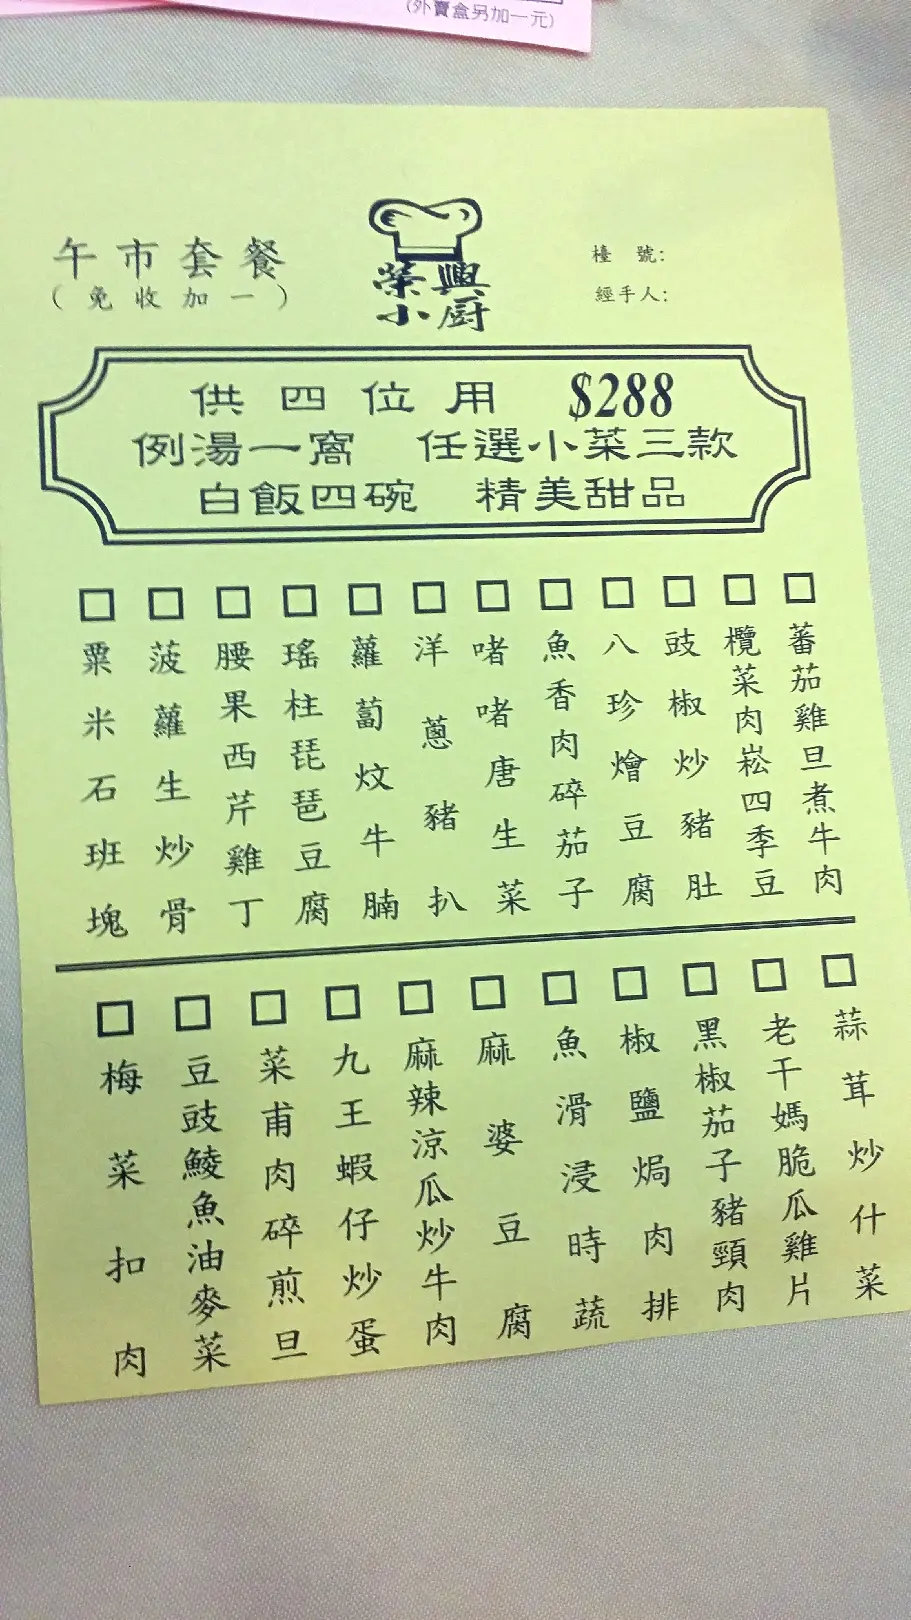 (外賣盒另加一元)
午市套餐
(免收加一)
榮興
小厨
檯 號:
經手人:
供四位用 $288
例湯一窩 任選小菜三款
白飯四碗 精美甜品
蕃茄雞旦煮牛肉
欖菜肉崧四季豆
豉椒炒豬肚
八珍燴豆腐
魚香肉碎茄子
啫啫唐生菜
洋蔥豬扒
蘿蔔炆牛腩
瑤柱琵琶豆腐
腰果西芹雞丁
菠蘿生炒骨
粟米石班塊
蒜茸炒什菜
老干媽脆瓜雞片
黑椒茄子豬頸肉
椒鹽焗肉排
魚滑浸時蔬
麻婆豆腐
麻辣涼瓜炒牛肉
九王蝦仔炒蛋
菜甫肉碎煎旦
豆豉鯪魚油麥菜
梅菜扣肉